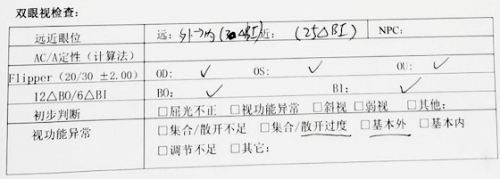 双眼视检查:
远近眼位 远: 外→内 ( △BI) 近: (25△BI) NPC:
AC/A定性（计算法）
Flipper (20/30 ±2.00) OD: ✓ OS: ✓ OU: ✓
12△BO/6△BI BO: ✓ BI: ✓
初步判断 □屈光不正 □视功能异常 □斜视 □弱视 □其他:
视功能异常 □集合/散开不足 □集合/散开过度 □基本外 □基本内
□调节不足 □其它: